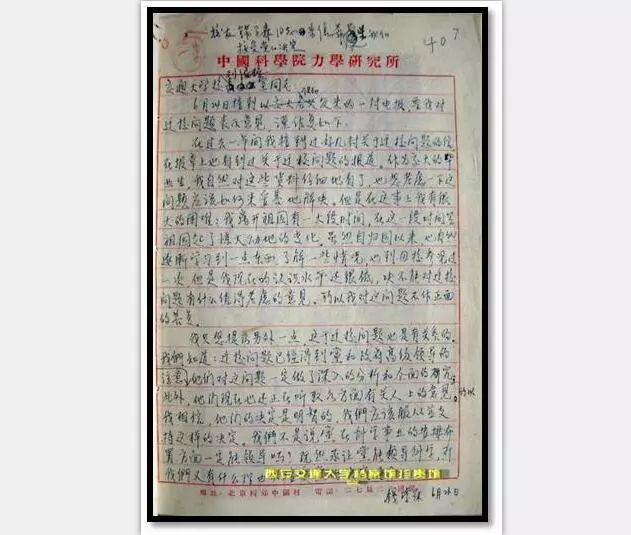 407
中國科學院力學研究所
交通大学校
6月24日接到
过校问题表示意见,谨作复如下:
在过去一年间我接到过好几封关于过校问题的信
在报章上也看到过关于过校问题的报道。作为交大的毕
业生,我自然对这些资料仔细地看了,也想考虑一下这
问题应该如何来妥善地解决。但是在这事上我有很
大的困难:我离开祖国有一大段时间,在这一段时间里
祖国起了惊天动地的变化。虽然自归国以来,也有
逐渐学习到一点东西,了解一些情况,也到
一次,但是我现在的认识水平还很低,决不能对过校
问题有什么值得考虑的意见。所以我对这问题不作正面
的答复。
我只想提出另外一点,这于过校问题也是有关系的。
我们知道:过校问题已经得到党和政府高级领导的
注意,他们对这问题一定做了深入的分析和全面的研究。
此外,他们现在也还正在听取各方面有关人士的意见。所以
我相信,他们的决定是明智的,我们应该服从并支
持这样的决定。我们不是说党在科学事业的安排布
置方面一定能领导吗?既然承认党能领导科学,那
我们又有什么理由
西安交通大学档案馆珍贵馆
地址:北京西郊中關村 電話:二七局
钱学森 6月26日